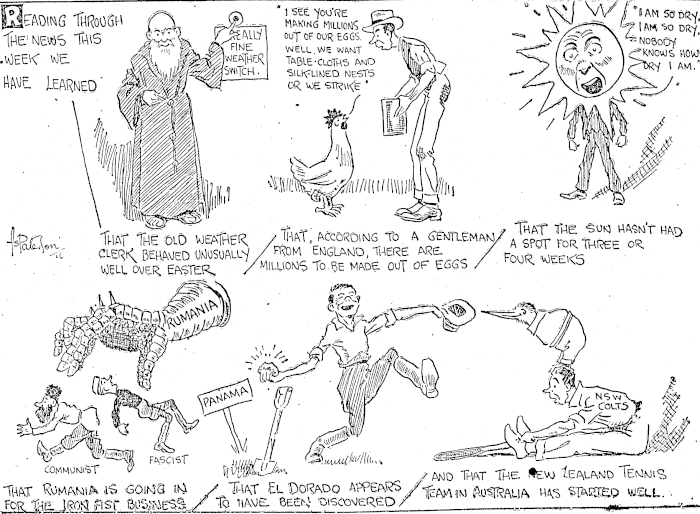 READING THROUGH
THE NEWS THIS
WEEK WE
HAVE LEARNED
REALLY
FINE
WEATHER
SWITCH.
THAT THE OLD WEATHER
CLERK BEHAVED UNUSUALLY
WELL OVER EASTER
"I SEE YOU'RE
MAKING MILLIONS
OUT OF OUR EGGS.
WELL, WE WANT
TABLE-CLOTHS AND
SILK-LINED NESTS
OR WE STRIKE"
THAT, ACCORDING TO A GENTLEMAN
FROM ENGLAND, THERE ARE
MILLIONS TO BE MADE OUT OF EGGS
"I AM SO DRY,
I AM SO DRY,
NOBODY
KNOWS HOW
DRY I AM."
THAT THE SUN HASN'T HAD
A SPOT FOR THREE OR
FOUR WEEKS
RUMANIA
COMMUNIST
FASCIST
THAT RUMANIA IS GOING IN
FOR THE IRON FIST BUSINESS
PANAMA
THAT EL DORADO APPEARS
TO HAVE BEEN DISCOVERED
NSW
COLTS
AND THAT THE NEW ZEALAND TENNIS
TEAM IN AUSTRALIA HAS STARTED WELL..